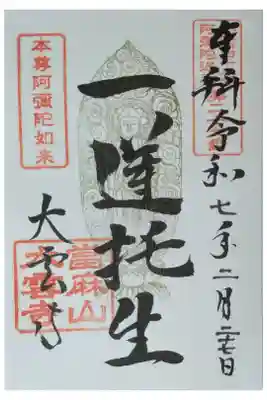 奉拜令和七年二月二七日
一蓮托生
本尊阿彌陀如来
大雲寺
當麻山
大雲寺